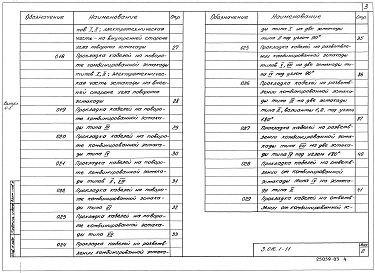 3
Обозначение Наименование Стр
типов I, II; электротехническая
часть - на внутренней стороне
лотка поворота эстакады 27
018 Прокладка кабелей на поворо-
те комбинированной эстакады
типов I, II; электротехничес-
кая часть эстакады на внеш-
ней стороне поворота
эстакады 28
019 Прокладка кабелей на поворо-
те комбинированной эстака-
ды типа III 29
020 Прокладка кабелей на поворо-
те комбинированной эстака-
ды типа IV 30
021 Прокладка кабелей на поворо-
те комбинированной эстака-
ды типов 31
022 Прокладка кабелей на поворо-
те комбинированной эстака-
ды типа 32
023 Прокладка кабелей на поворо-
те комбинированной эстака-
ды типа 33
024 Прокладка кабелей на разветв-
лении комбинированной эстака-
Обозначение Наименование Стр
ды типа I на две эстакады
типа II под углом 90° 35
025 Прокладка кабелей на разветв-
лении комбинированной эстака-
ды типов на две эстакады ти-
па под углом 90° 36
026 Прокладка кабелей на разветв-
лении комбинированной эстака-
ды типа III на две эстакады
типа II, варианты 1, 2, под углом
180° 37
027 Прокладка кабелей на разветв-
лении комбинированной эстака-
ды типа на две эстака-
ды типа под углом 180° 40
028 Прокладка кабелей на ответв-
лении от комбинированной
эстакады типа на эстака-
ды типа II 41
029 Прокладка кабелей на ответв-
лении от комбинированной э-
3.016.1-11
Лист
2
25059-03 4